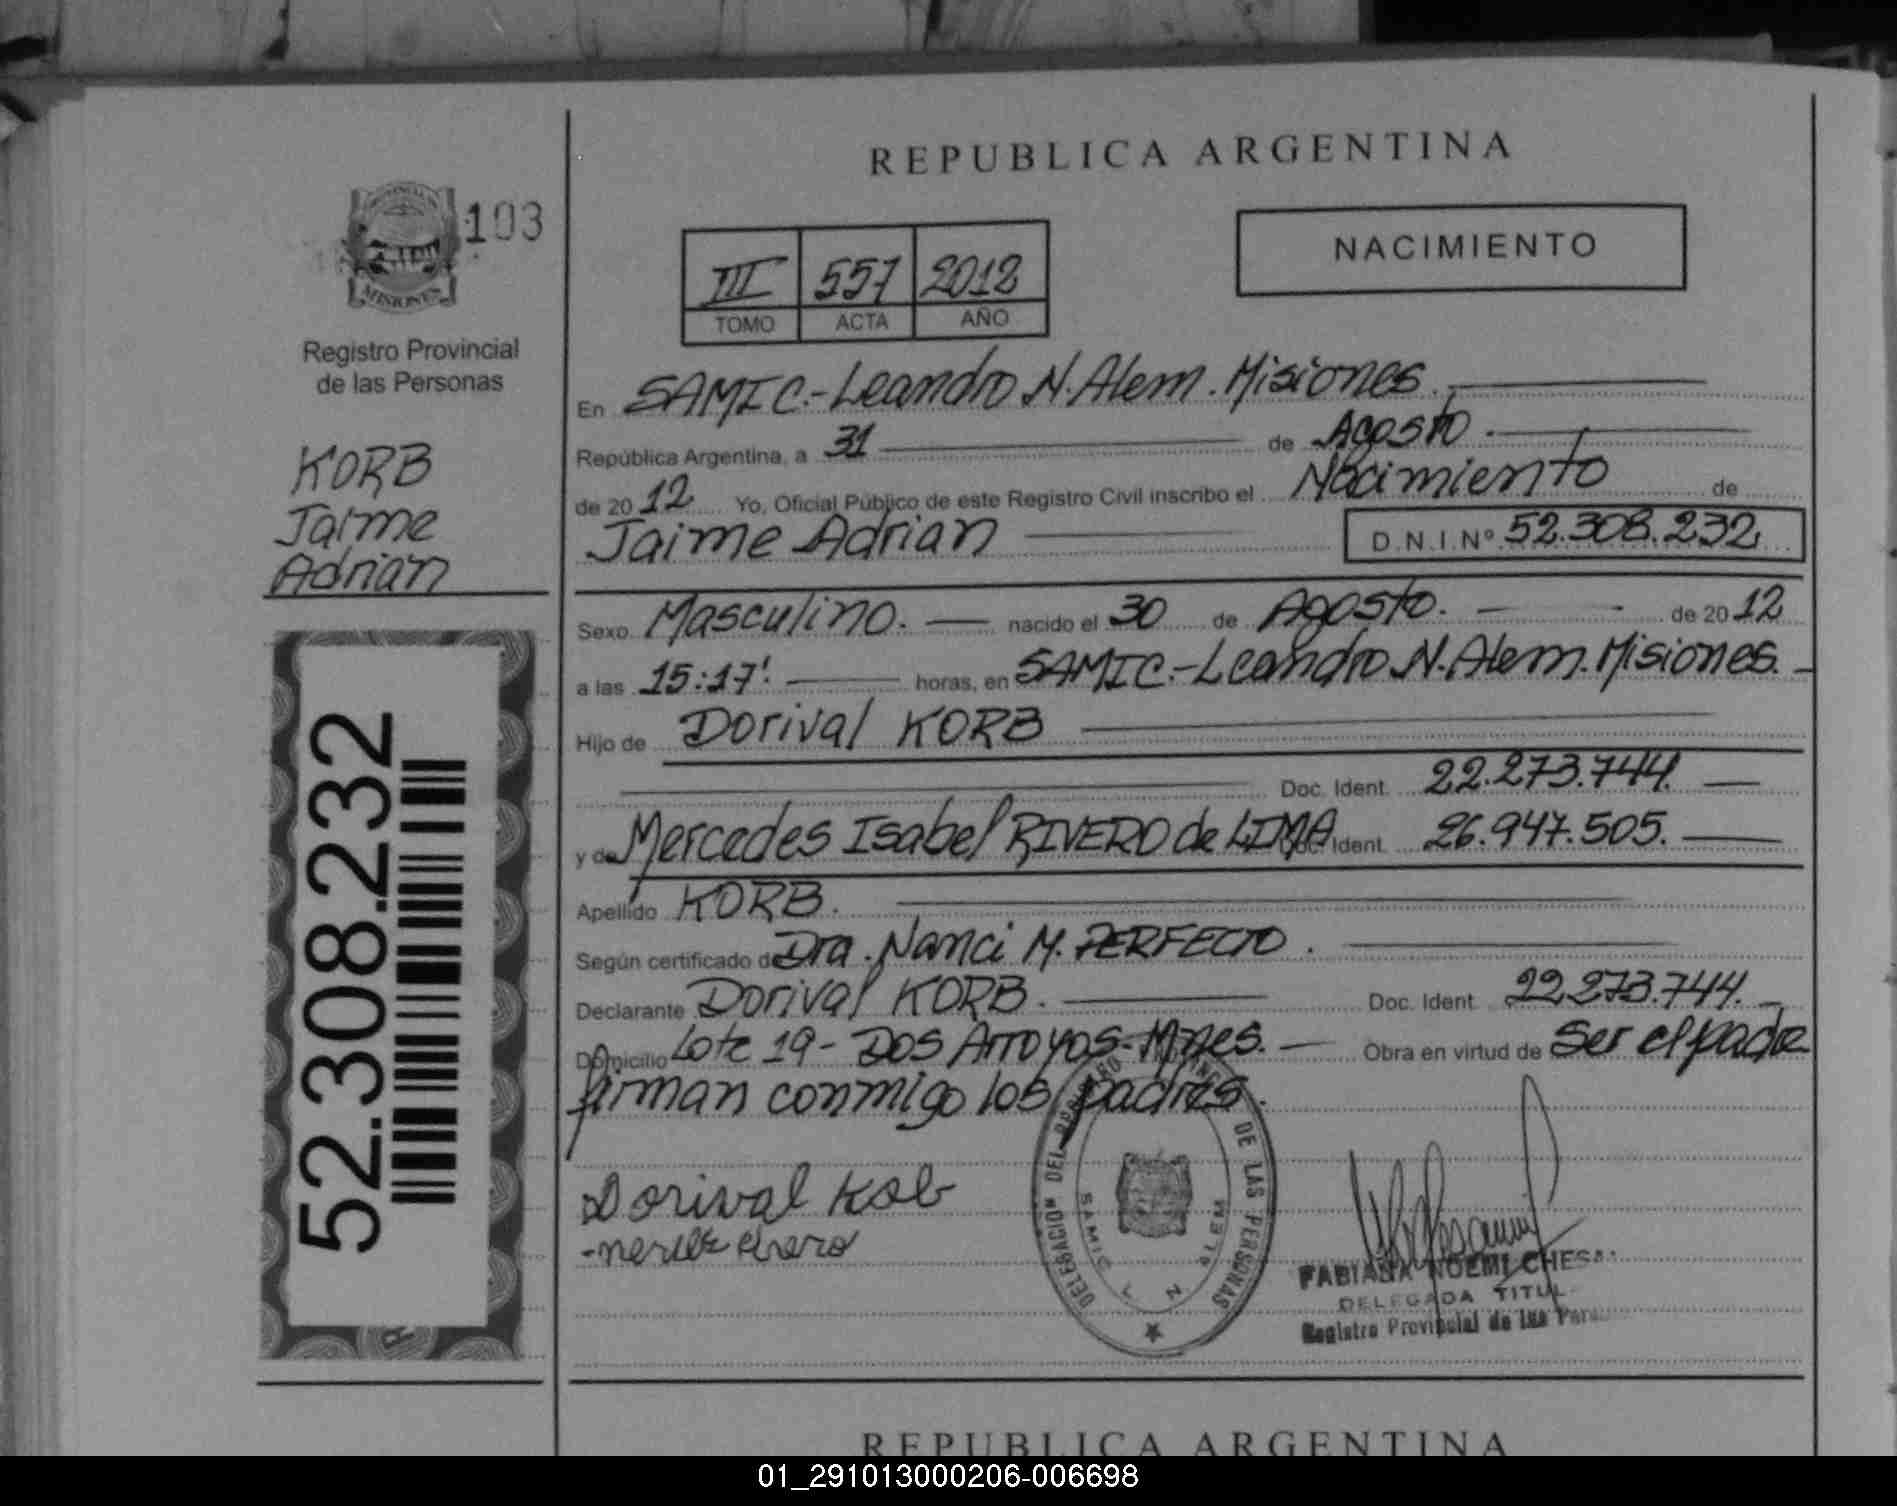 REPUBLICA ARGENTINA
PROVINCIA
MISIONES
103
Registro Provincial
de las Personas
KORB
Jaime
Adrian
52.308.232
III 557 2012
TOMO ACTA AÑO
NACIMIENTO
En SAMIC.-Leandro N. Alem. Misiones.
República Argentina, a 31 de Agosto
de 2012 Yo, Oficial Público de este Registro Civil inscribo el Nacimiento de
Jaime Adrian D.N.I.Nº 52.308.232
Sexo Masculino. nacido el 30 de Agosto. de 2012
a las 15:17' horas, en SAMIC.-Leandro N. Alem. Misiones.
Hijo de Dorival KORB
Doc. Ident. 22.273.744.
y de Mercedes Isabel RIVERO de LIMA Doc. Ident. 26.947.505.
Apellido KORB.
Según certificado de Dra. Nanci M. PERFECTO.
Declarante Dorival KORB. Doc. Ident. 22.273.744.
Domicilio Lote 19 - Dos Arroyos - Mnes. Obra en virtud de Ser el padre
firman conmigo los padres.
Dorival
DELEGACION DEL REGISTRO PROVINCIAL DE LAS PERSONAS
SAMIC L N ALEM
FABIANA NOEMI
DELEGADA
Registro Provincial de las
REPUBLICA ARGENTINA
01_291013000206-006698